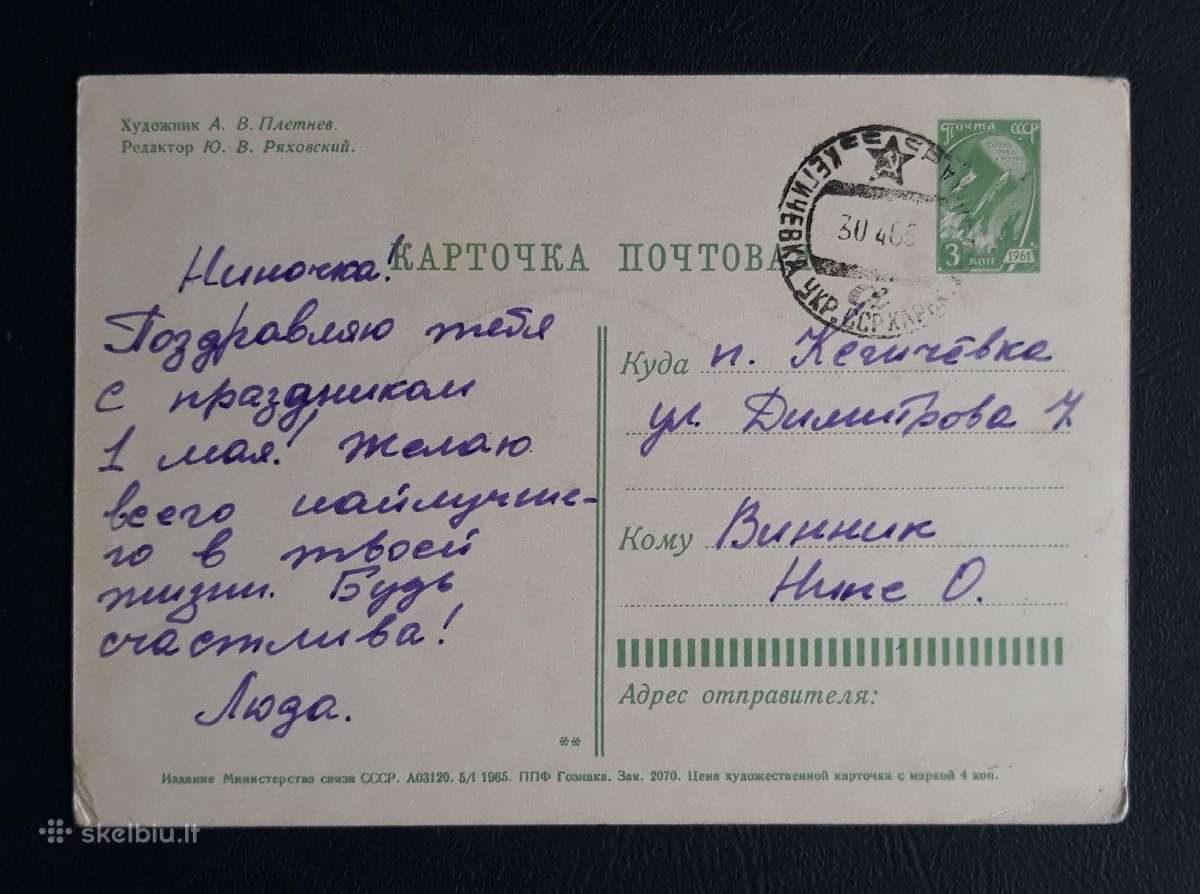 Художник А. В. Плетнев.
Редактор Ю. В. Ряховский.
Почта СССР
3 коп 1961
КЕГИЧЕВКА УКР. ССР ХАРЬК.
30 4 65
КАРТОЧКА ПОЧТОВА
Ниночка!
Поздравляю тебя
с праздником
1 мая! Желаю
всего найлучше-
го в твоей
жизни. Будь
счастлива!
Люда.
Куда п. Кегичёвка
ул. Димитрова 7
Кому Винник
Нине О.
Адрес отправителя:
**
Издание Министерства связи СССР. А03120. 5/I 1965. ППФ Гознака. Зак. 2070. Цена художественной карточки с маркой 4 коп.
skelbiu.lt